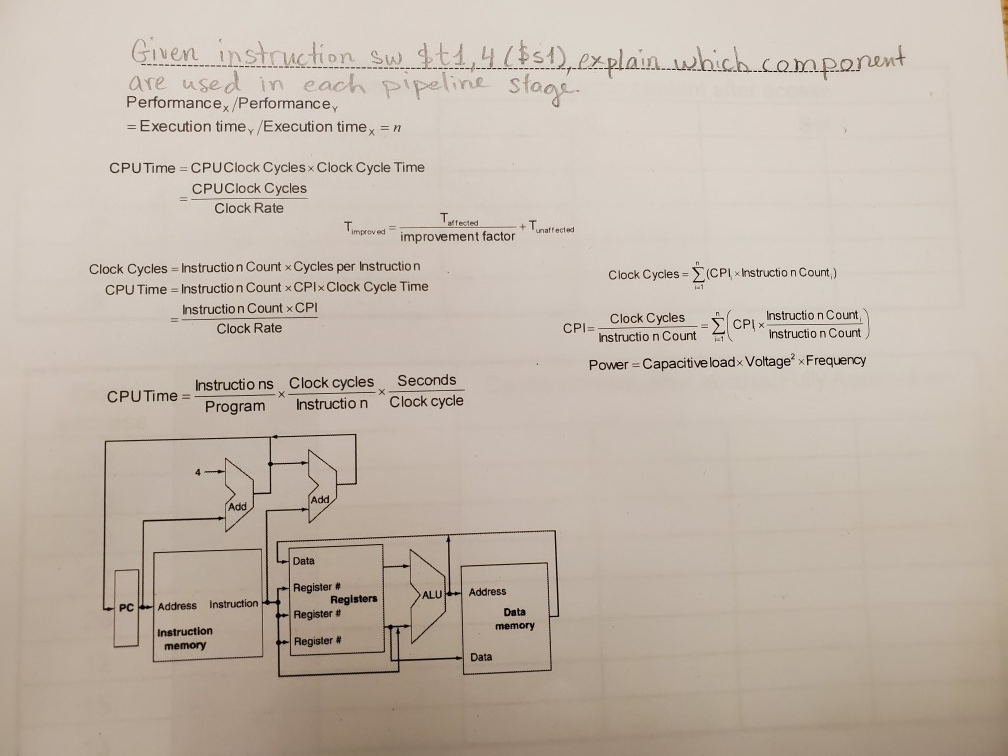 Given instruction sw $t1, 4 ($s1), explain which component
are used in each pipeline stage.
Performance_X / Performance_Y
= Execution time_Y / Execution time_X = n
CPU Time = CPU Clock Cycles × Clock Cycle Time
= CPU Clock Cycles / Clock Rate
T_improved = T_affected / improvement factor + T_unaffected
Clock Cycles = Instruction Count × Cycles per Instruction
CPU Time = Instruction Count × CPI × Clock Cycle Time
= Instruction Count × CPI / Clock Rate
Clock Cycles = ∑_{i=1}^{n} (CPI_i × Instruction Count_i)
CPI = Clock Cycles / Instruction Count = ∑_{i=1}^{n} (CPI_i × Instruction Count_i / Instruction Count)
Power = Capacitive load × Voltage² × Frequency
CPU Time = Instructions / Program × Clock cycles / Instruction × Seconds / Clock cycle
4
Add
Add
PC
Address
Instruction
Instruction
memory
Data
Register #
Registers
Register #
Register #
ALU
Address
Data
memory
Data